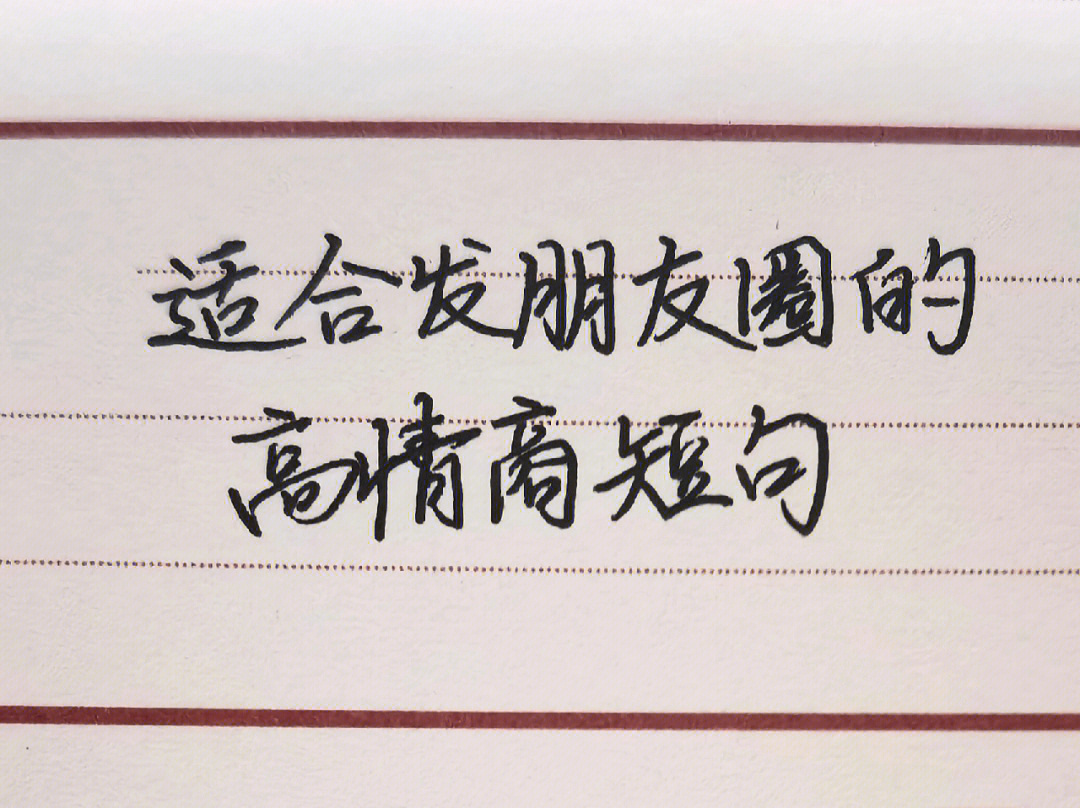 适合发朋友圈的
高情商短句